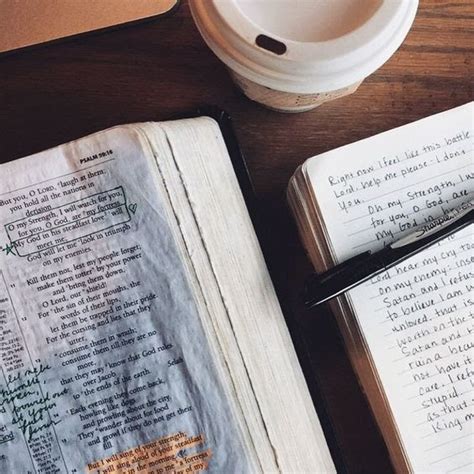 PSALM 59:16
But you, O LORD, laugh at them;
you hold all the nations in
derision.
O my Strength, I will watch for you,
for you, O God, are my fortress.
My God in his steadfast love will
meet me;
God will let me look in triumph
on my enemies.
Kill them not, lest my people forget;
make them totter by your power
and bring them down,
O Lord, our shield!
For the sin of their mouths, the
words of their lips,
let them be trapped in their pride.
For the cursing and lies that they
consume them in wrath;
consume them till they are no
more,
that they may know that God rules
over Jacob
to the ends of the earth.
Each evening they come back,
howling like dogs
and prowling about the city.
They wander about for food
and growl if they do not get
But I will sing of your strength;
I will sing aloud of your steadfast
in the morning
Right now I feel like this battle
Lord. help me please. I don't
You.
Oh my Strength, I w
for you, O God, are
my God in
Lord hear my cry
on my enemy.
Satan and
to believe I am
unloved. that
worth on th
Satan and
ruin a bea
not have
care. I ref
stupid.
as that
King